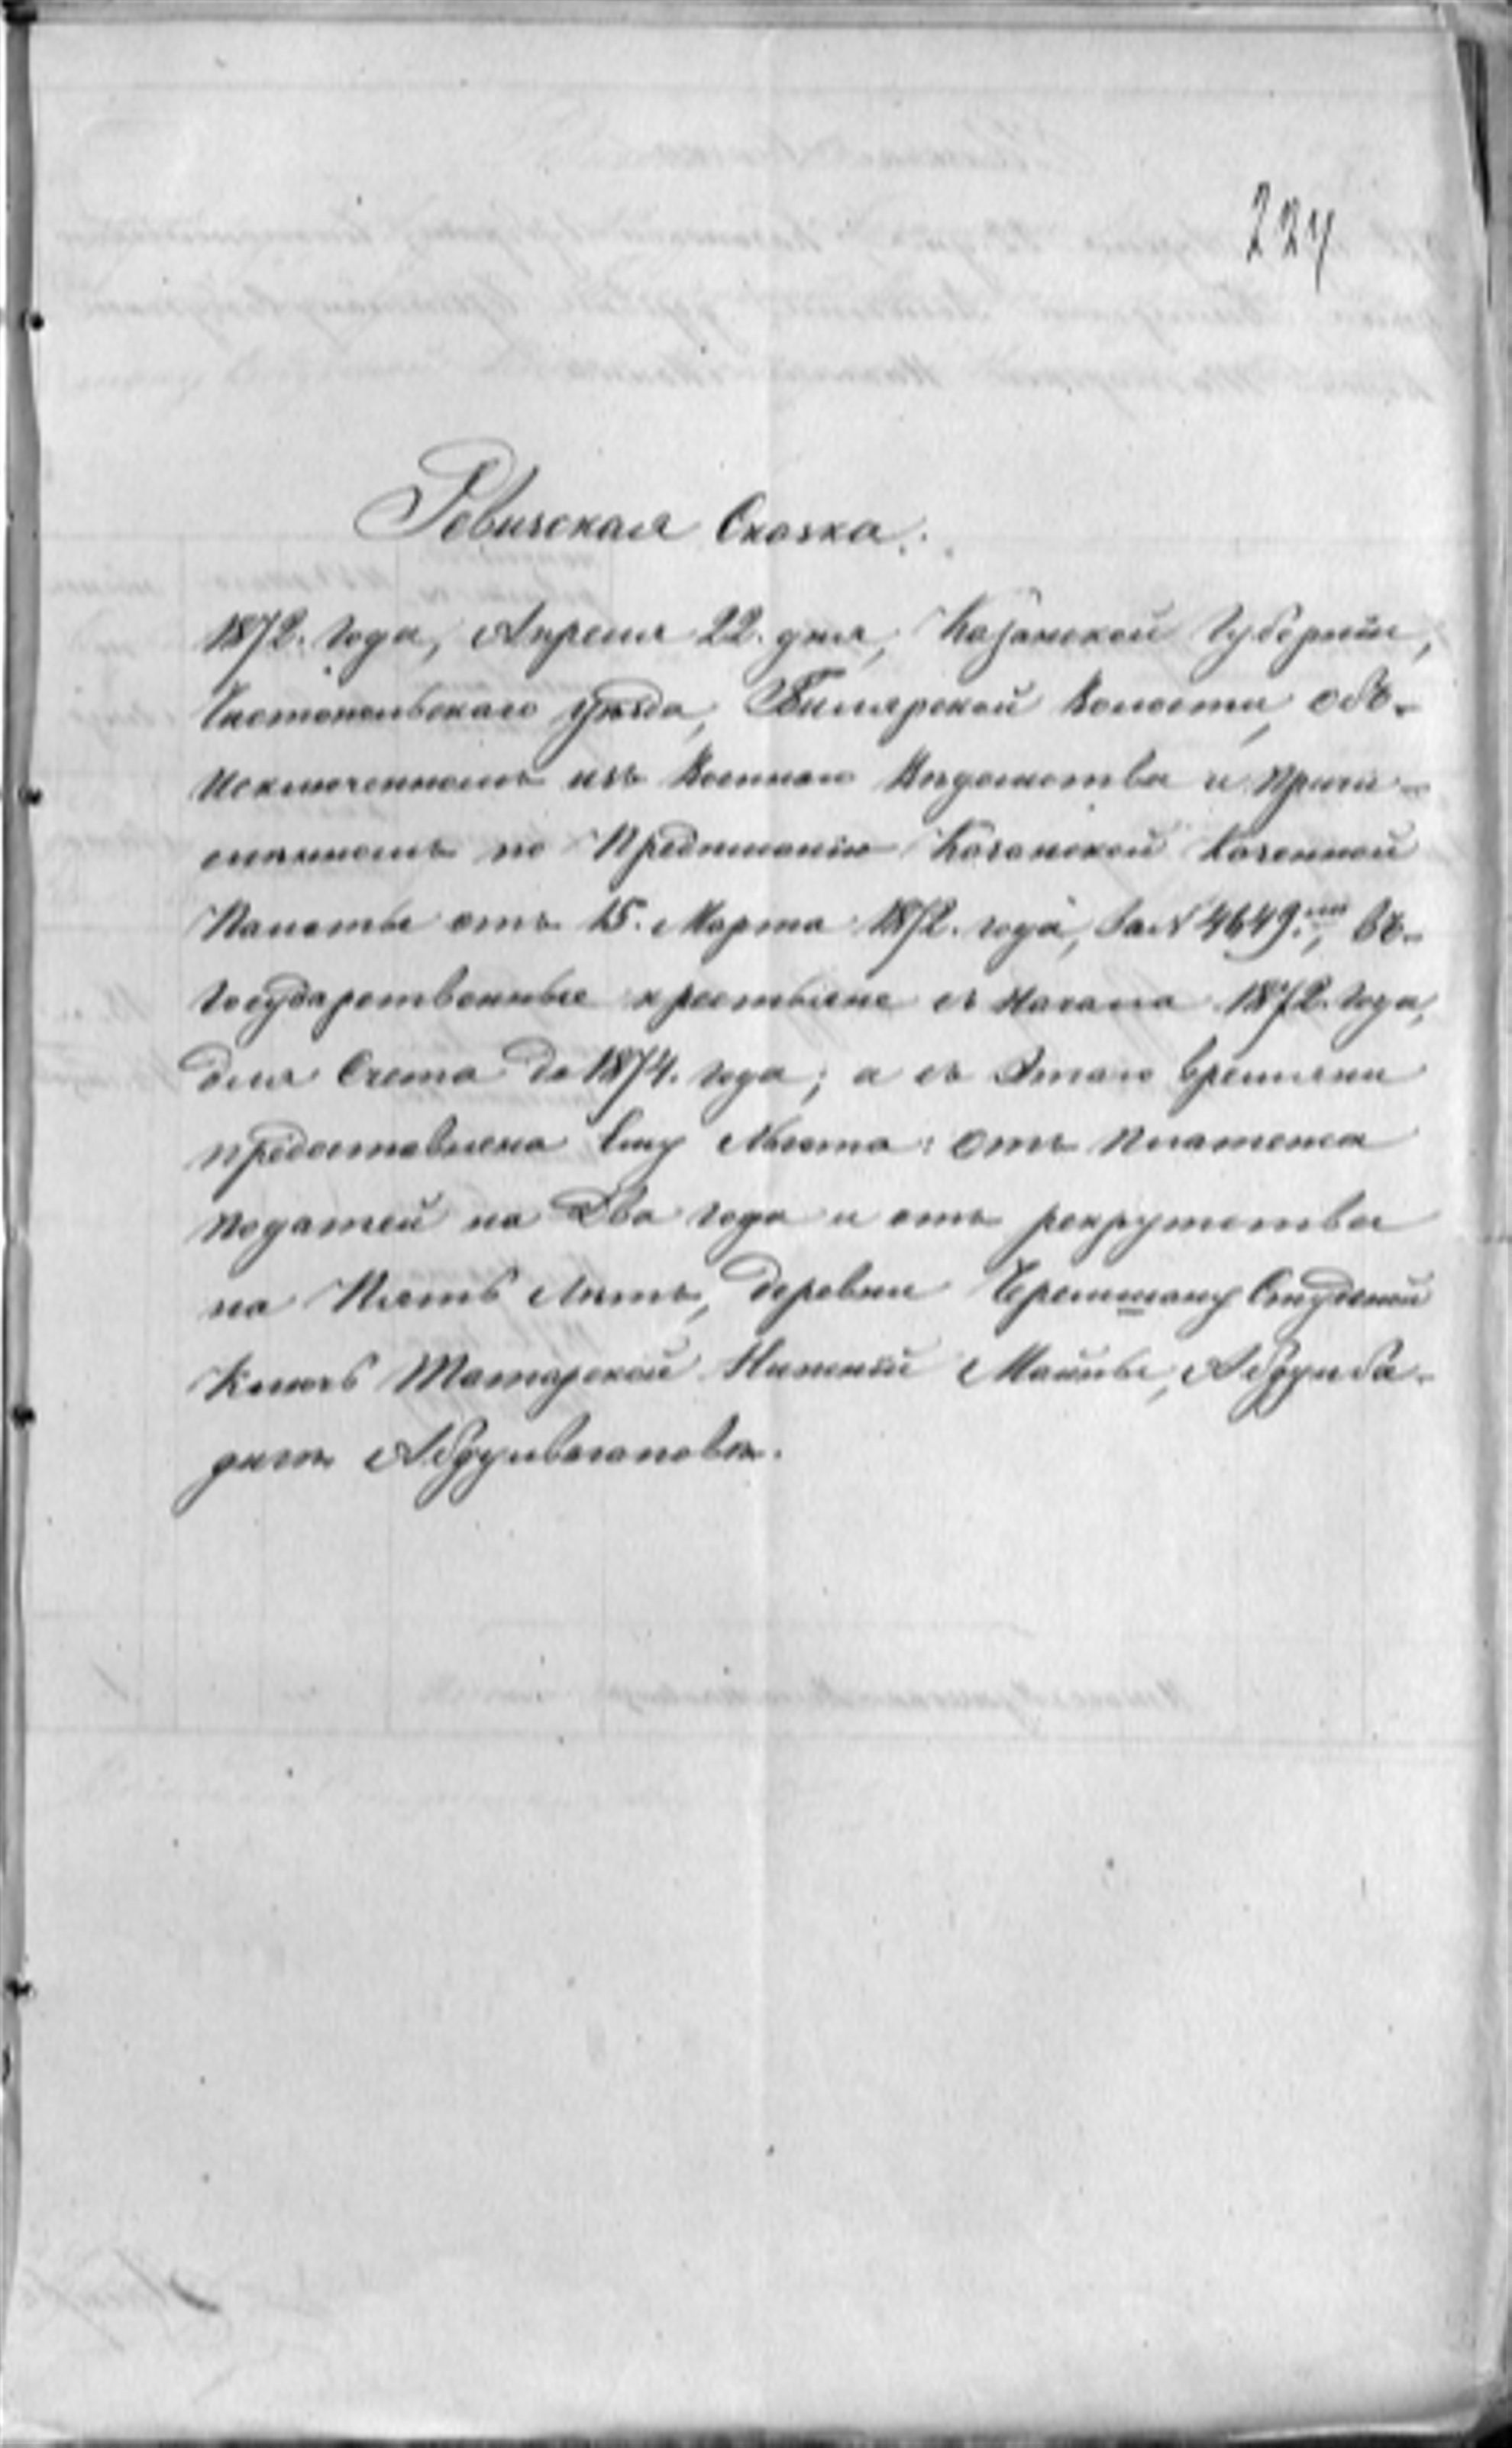 227
Ревизская Сказка.
1872. года, Апреля 22. дня, Казанской Губернiи,
Чистопольскаго уѣзда, Билярской Волости, объ-
Исключенномъ изъ Военнаго Вѣдомства и причи-
сленномъ по Предписанiю Казанской Казенной
Палаты отъ 15. Марта 1872. года, за № 4649.мъ, въ-
Государственные крестьяне съ Начала 1872. года,
для Счета до 1874. года; а съ Этаго времяни
предоставлена Ему Льгота: отъ платежа
податей на Два года и отъ рекрутства
на Пять Лѣтъ, деревни Черемшану Студеной
Ключь Татарской Нижнiй Майны, Абдулба-
дигъ Абдулвагаповѣ.